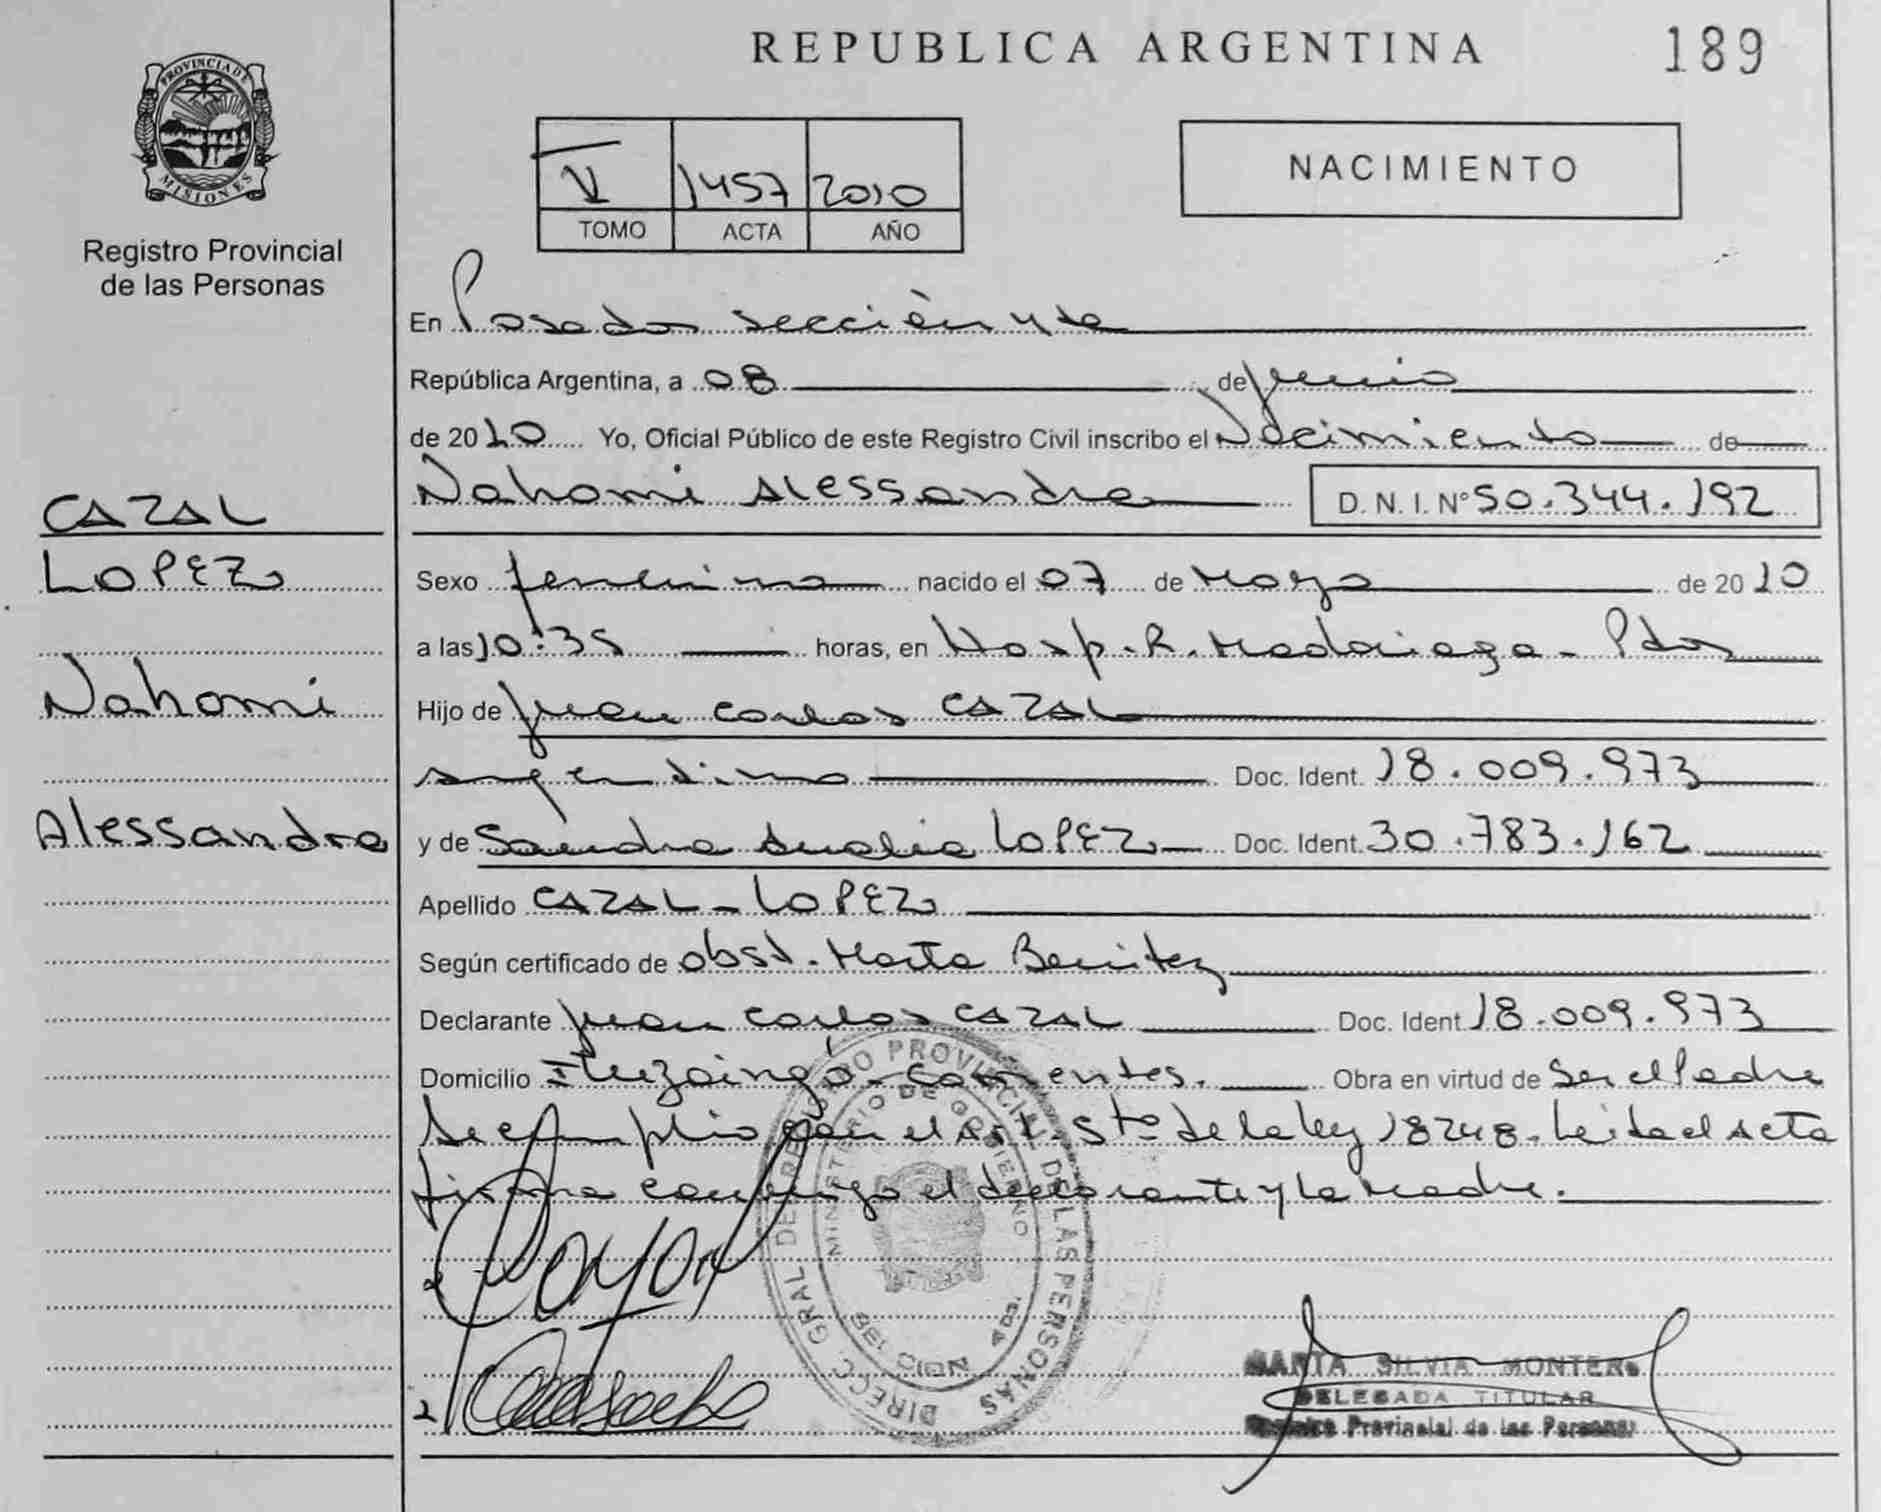 PROVINCIA DE
MISIONES
Registro Provincial
de las Personas
CAZAL
LOPEZ
Nahomi
Alessandra
REPUBLICA ARGENTINA
189
V 1457 2010
TOMO ACTA AÑO
NACIMIENTO
En Posadas sección 4ta
República Argentina, a 08 de junio
de 2010 Yo, Oficial Público de este Registro Civil inscribo el Nacimiento de
Nahomi Alessandra D. N. I. Nº 50.344.192
Sexo femenino nacido el 07 de Mayo de 2010
a las 10:35 horas, en Hosp. R. Madariaga - Pdas
Hijo de Juan Carlos CAZAL
argentino Doc. Ident. 18.009.973
y de Sandra LOPEZ Doc. Ident. 30.783.162
Apellido CAZAL - LOPEZ
Según certificado de obst. Marta Benitez
Declarante Juan Carlos CAZAL Doc. Ident 18.009.973
Domicilio Ituzaingó - Corrientes. Obra en virtud de Ser el Padre
Se cumplio con el Art. 5to de la ley 18248. Leida el Acta
firma conmigo el declarante y la madre.
DIRECC. GRAL. DE REGISTRO PROVINCIAL DE LAS PERSONAS
MINISTERIO DE GOBIERNO
MARTA SILVIA MONTERO
DELEGADA TITULAR
Registro Provincial de las Personas